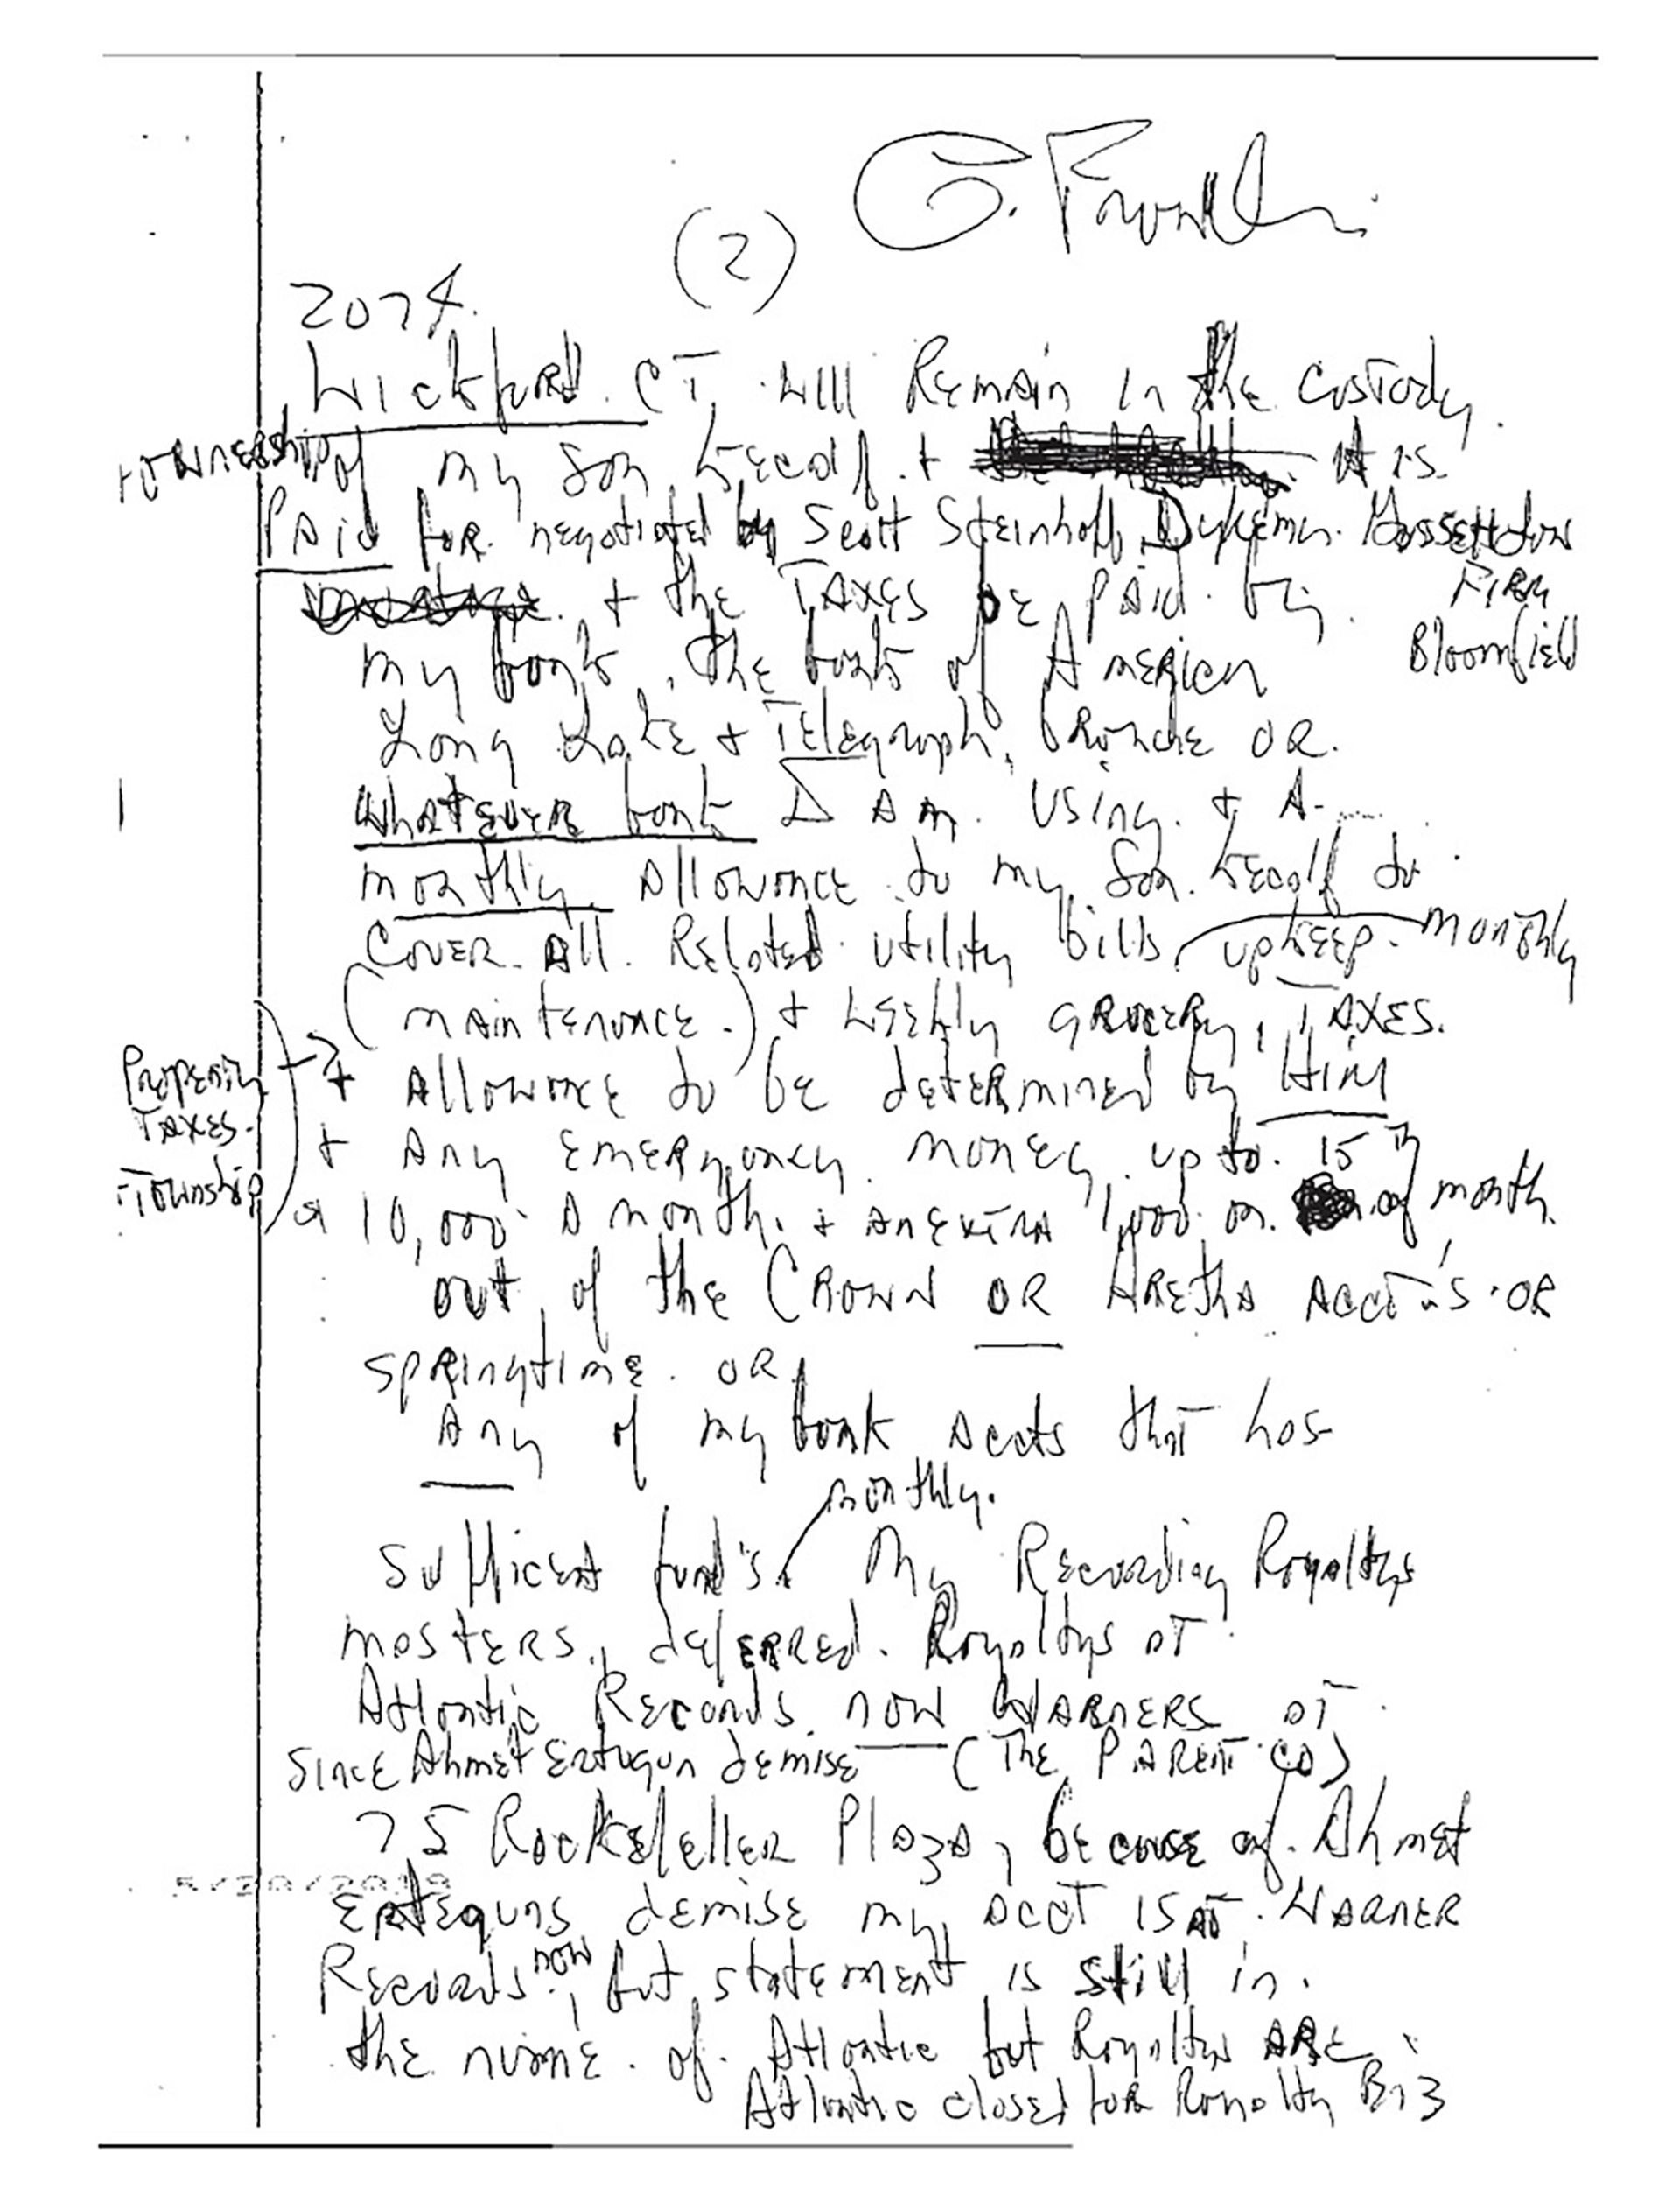 A. Franklin
(2)
2074
Wickford CT, will Remain in the custody
+ ownership of my Son Kecalf. + it is
PAid for negotiated by Scott Steinhoff, Dykema Gossett Law
FiRm
Bloomfield
+ the TAXES be PAid by
my bank, the bank of American
Long Lake + Telegraph, branche OR
whatever bank I Am Using + A
monthly Allowance to my Son Kecalf to
Cover All Related utility bills, upkeep monthly
(maintenance) + weekly grocery, TAXES.
Property
TAXES
Township
+ Allowance to be determined by Him
+ Any emergency money up to 15th
10,000 A month. + an extra 1,000 on of month
out of the Crown OR Aretha Acct's OR
springtime OR
Any of my bank Accts that has
monthly.
sufficient fund's. My Recording Royaltys
masters, deferred Royaltys at
Atlantic Records now Warners at
since Ahmet Ertugun demise (The Parent Co)
75 Rockefeller Plaza, because of Ahmet
Erteguns demise my Acct is at Warner
Records now, but statement is still in
5/20/2019
the name of Atlantic but Royaltys ARE
Atlantic closed for Royalty Biz